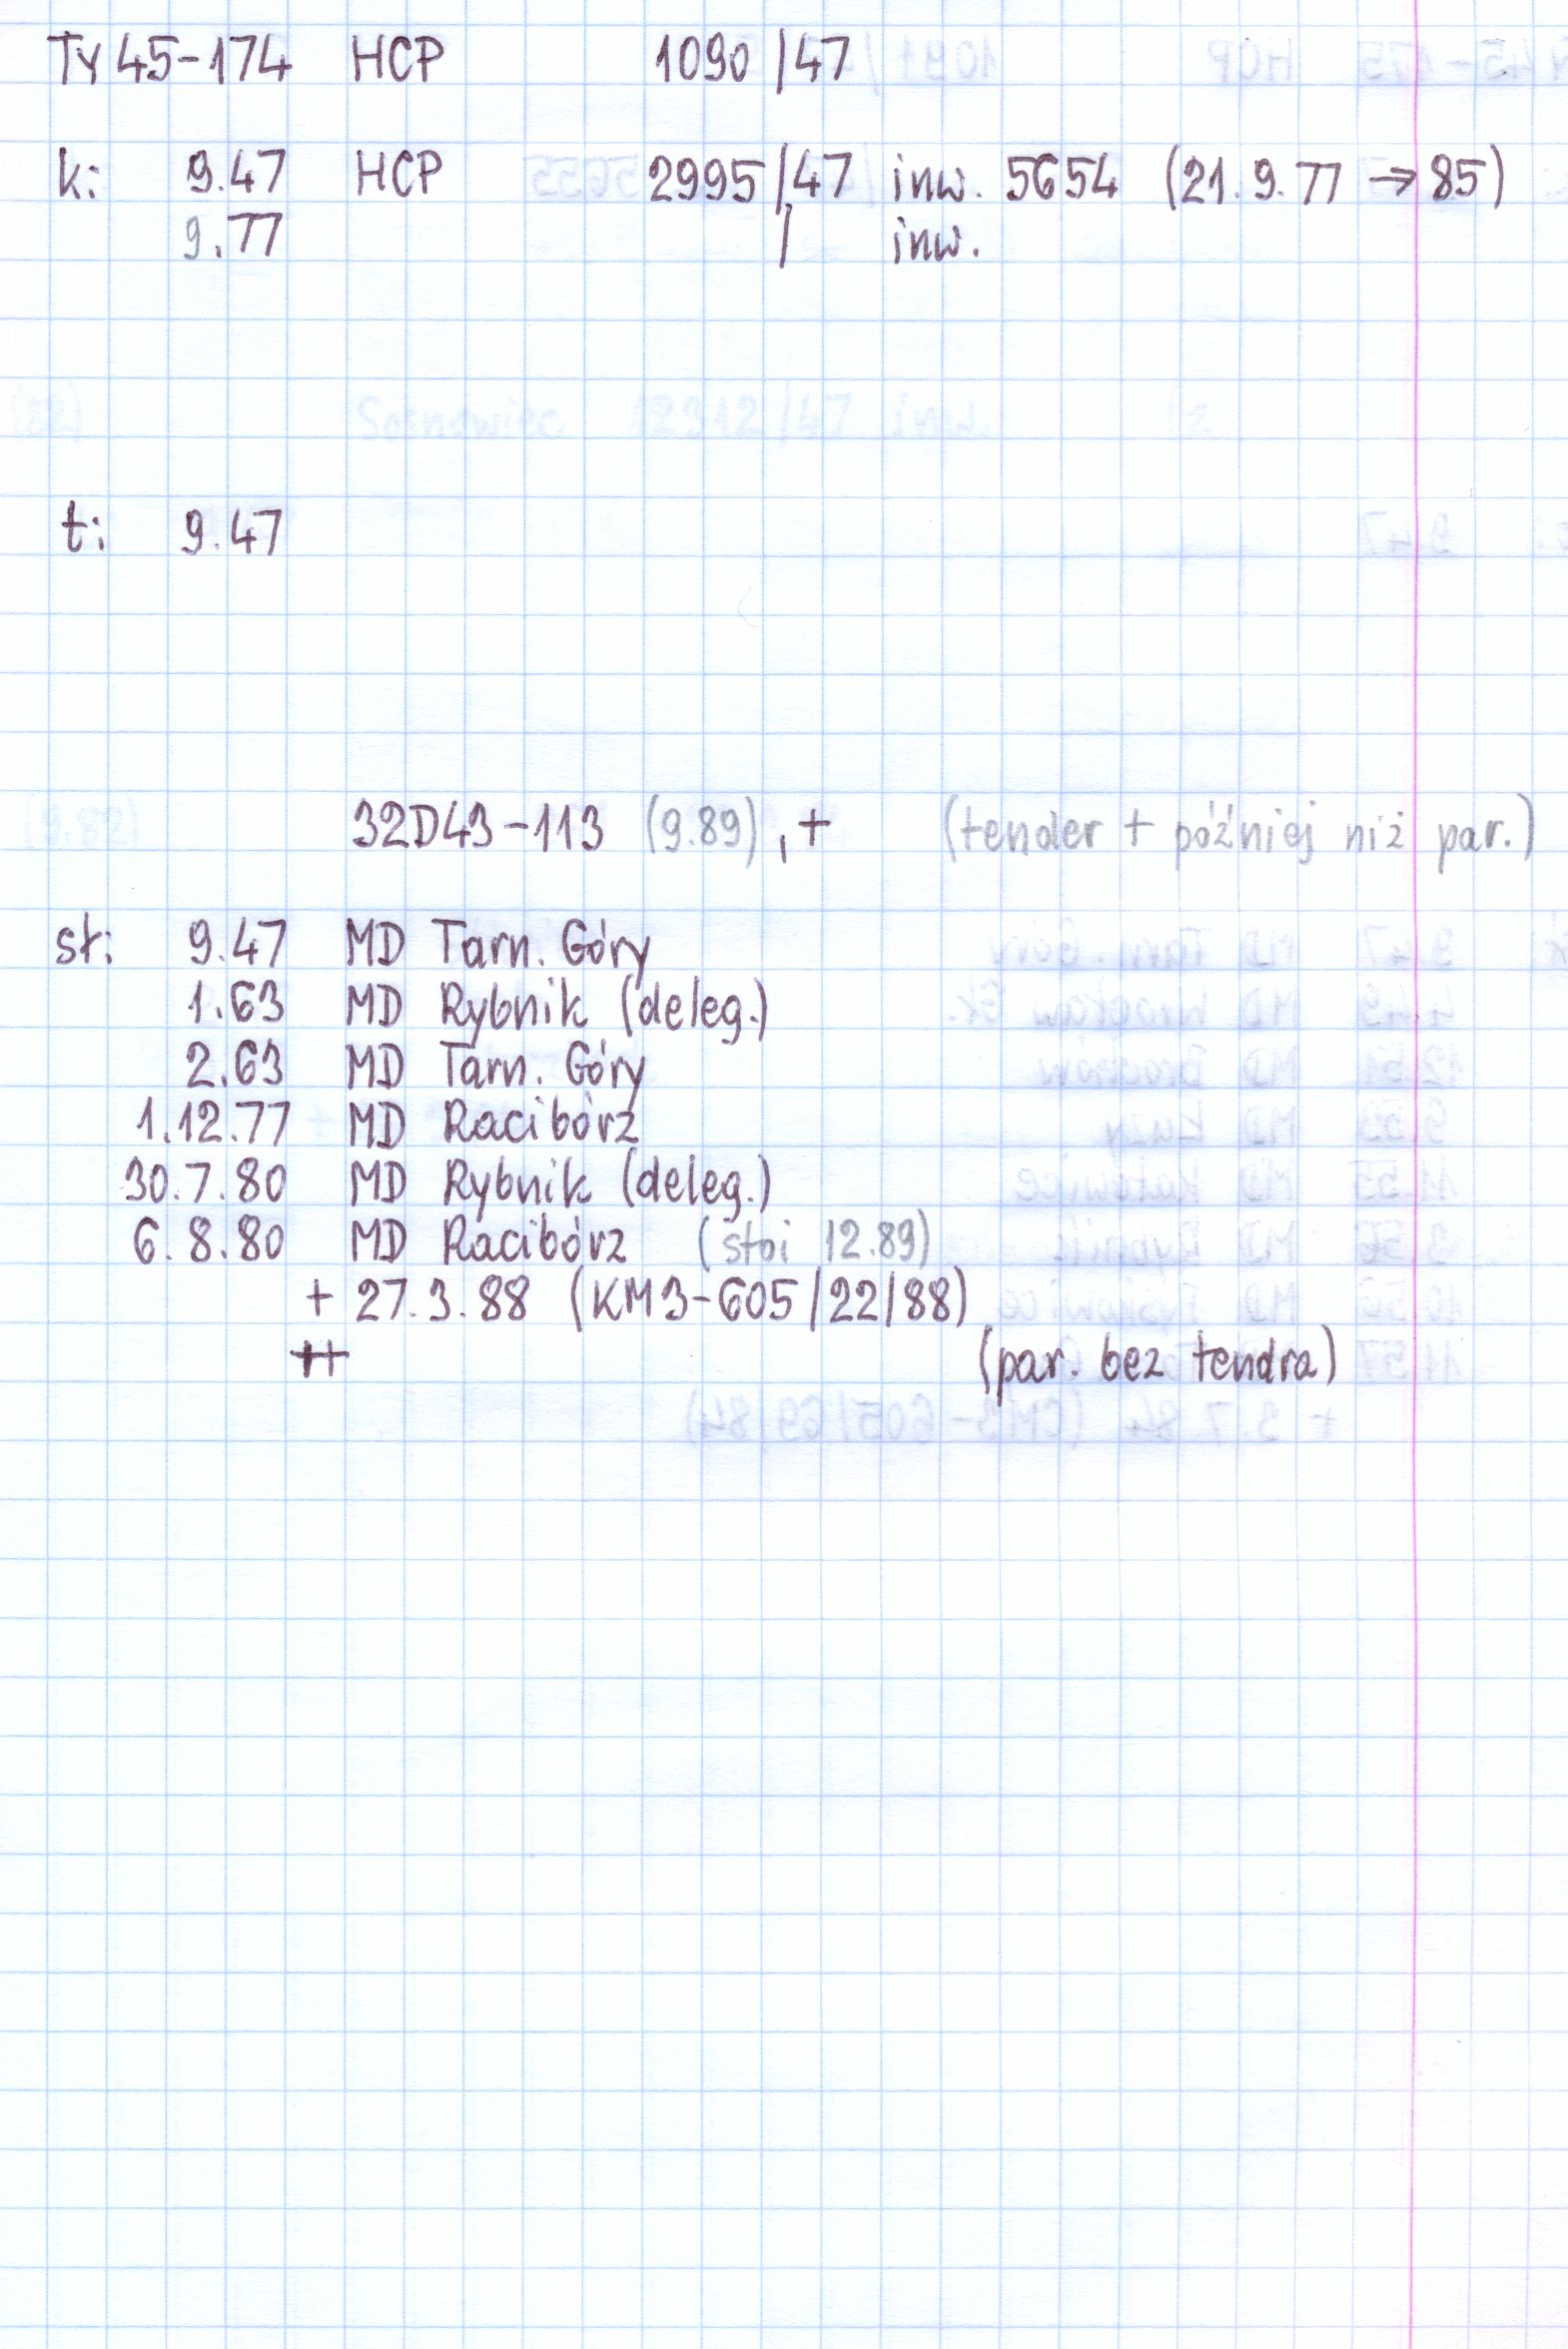 Ty45-174 HCP 1090/47
k: 9.47 HCP 2995/47 inw. 5654 (21.9.77 → 85)
9.77 / inw.
Sosnowiec 12312/47 inw.
t: 9.47
32D43-113 (9.89), + (tender + później niż par.)
st: 9.47 MD Tarn. Góry
1.63 MD Rybnik (deleg.)
2.63 MD Tarn. Góry
1.12.77 MD Racibórz
30.7.80 MD Rybnik (deleg.)
6.8.80 MD Racibórz (stoi 12.89)
+ 27.3.88 (KM3-605/22/88)
++ (par. bez tendra)